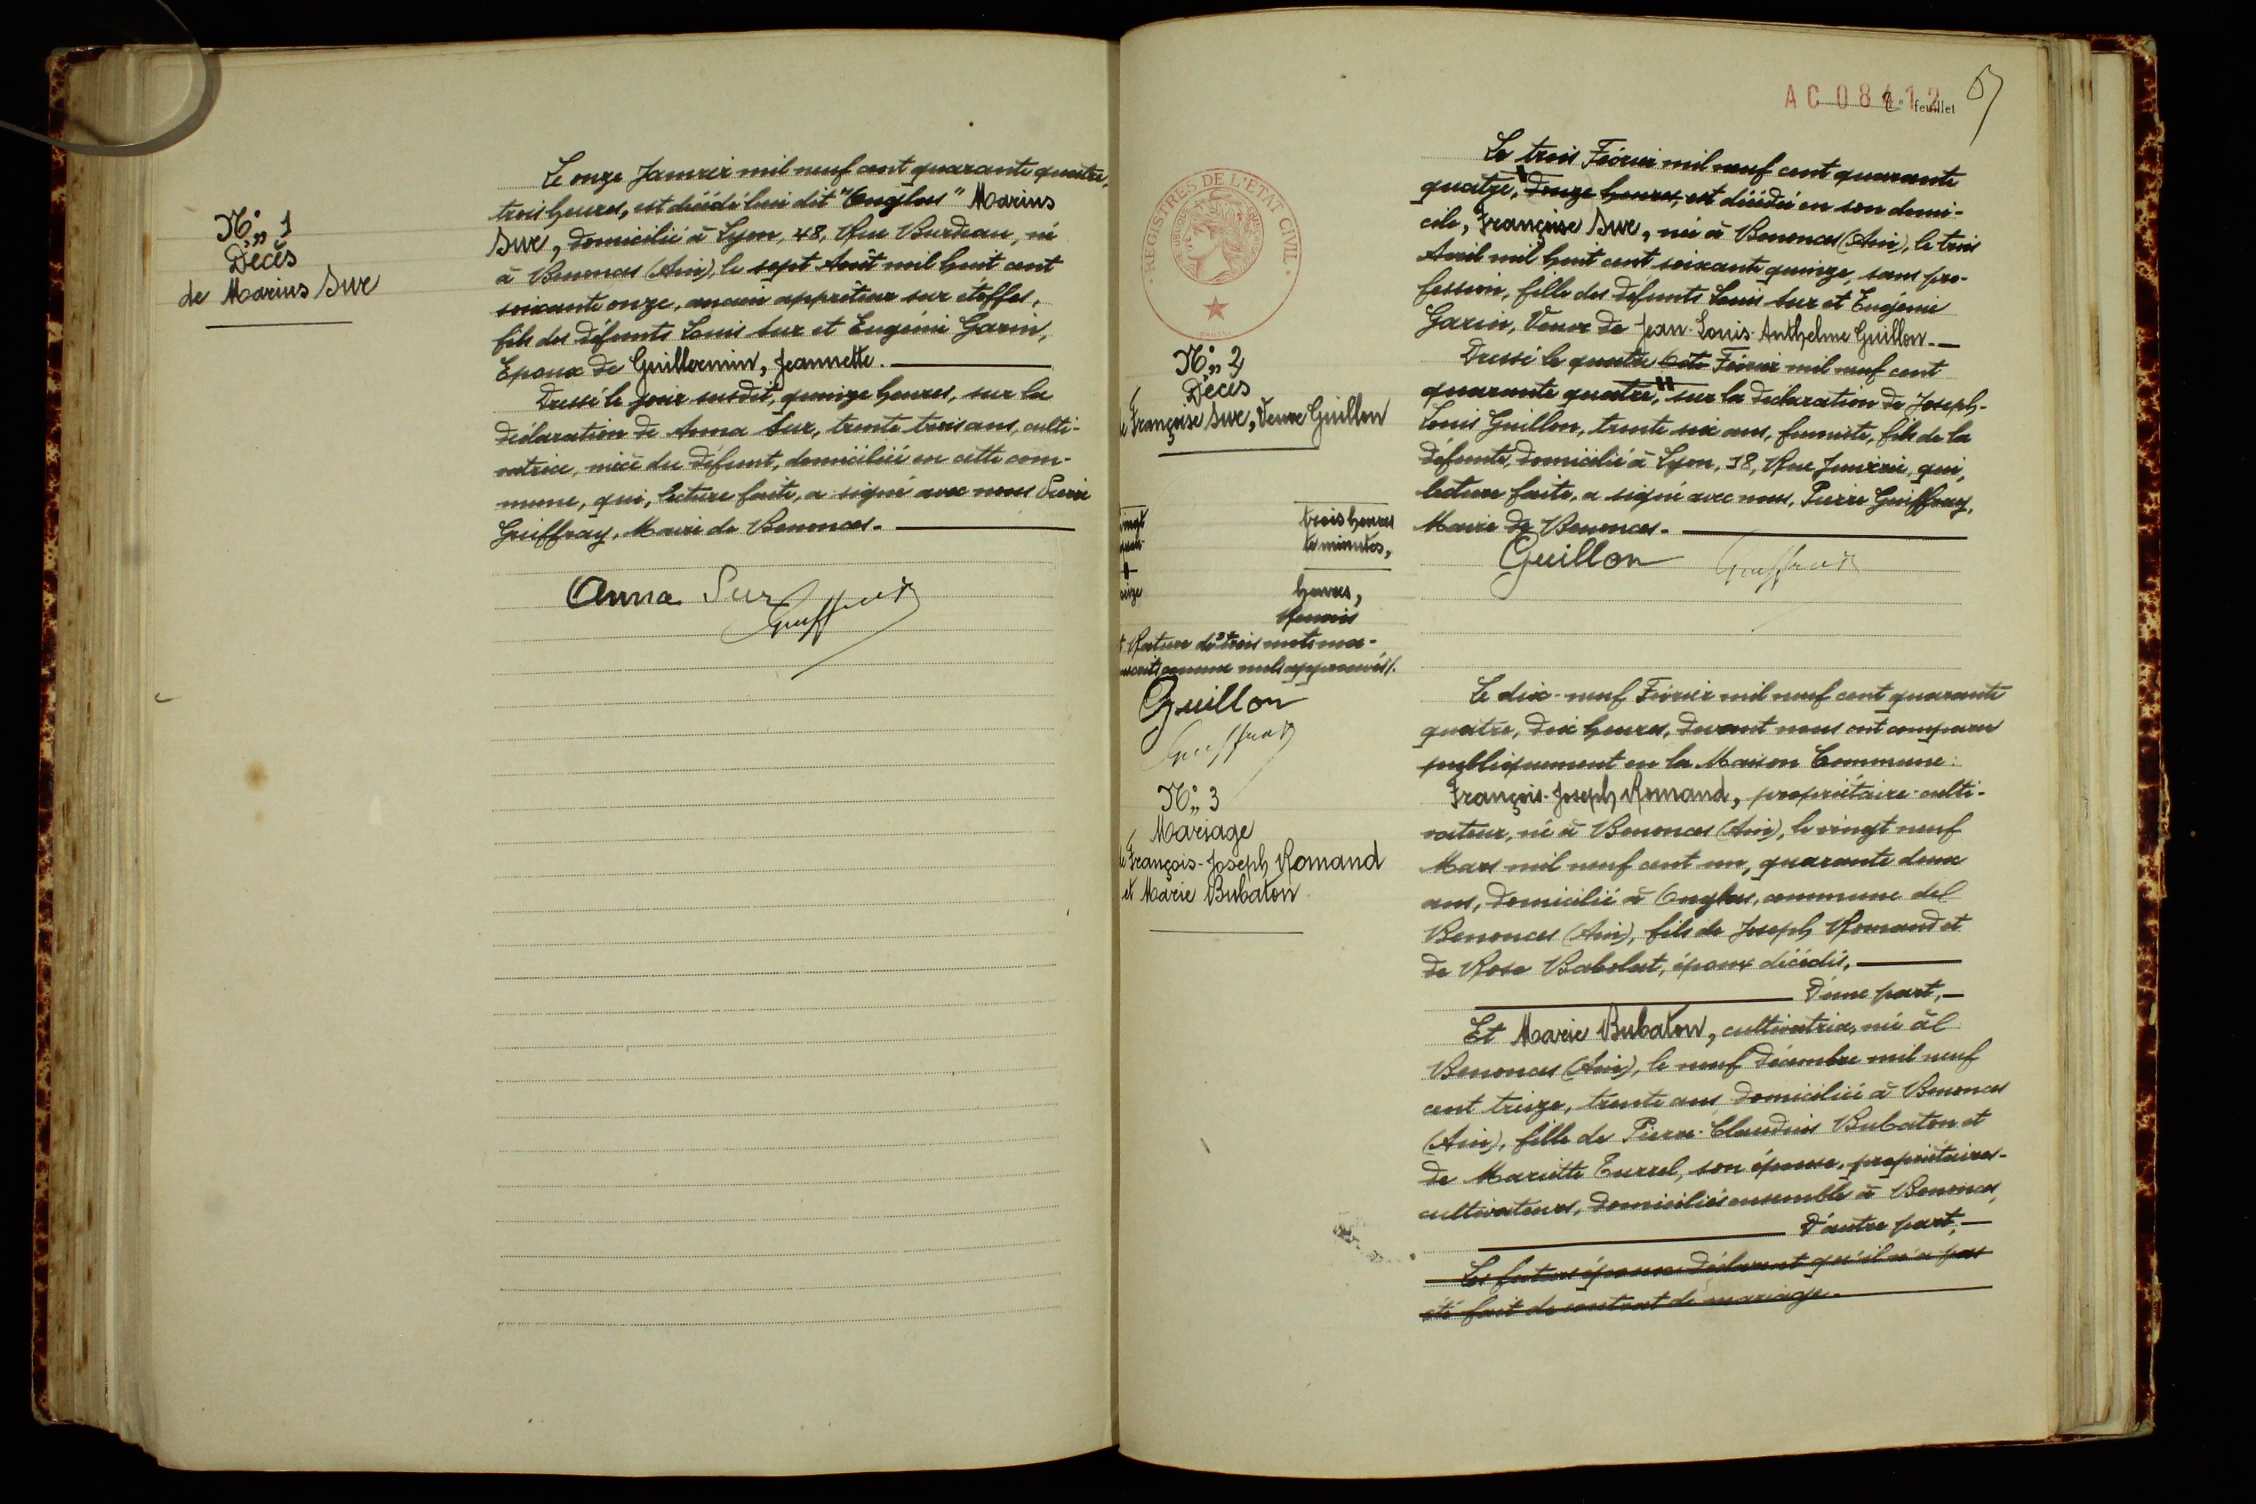 N° 1
Décès
de Marius Sur
Le onze Janvier mil neuf cent quarante quatre,
trois heures, est décédé lieu dit "Onglas" Marius
Sur, domicilié à Lyon, 48, Rue Burdeau, né
à Benonces (Ain), le sept Août mil huit cent
soixante onze, ancien apprêteur sur étoffes,
fils des défunts Louis Sur et Eugénie Garin,
Epoux de Guillermin, Jeannette.
Dressé le jour susdit, quinze heures, sur la
déclaration de Anna Sur, trente trois ans, culti-
vatrice, nièce du défunt, domiciliée en cette com-
mune, qui, lecture faite, a signé avec nous Pierre
Guiffray, Maire de Benonces.
Anna Sur
Guiffray
AC 08412
2e feuillet
REGISTRES DE L'ETAT CIVIL
N° 2
Décès
de Françoise Sur, Veuve Guillon
trois heures
minutes,
heures,
Renvois
et Rature de trois mots
nuls approuvés.
Guillon
Guiffray
Le trois Février mil neuf cent quarante
quatre, douze heures, est décédée en son domi-
cile, Françoise Sur, née à Benonces (Ain), le trois
Avril mil huit cent soixante quinze, sans pro-
fession, fille des défunts Louis Sur et Eugénie
Garin, Veuve de Jean-Louis-Anthelme Guillon.
Dressé le quatre Février mil neuf cent
quarante quatre, sur la déclaration de Joseph-
Louis Guillon, trente six ans, fumiste, fils de la
défunte, domicilié à Lyon, 18, Rue qui,
lecture faite, a signé avec nous, Pierre Guiffray,
Maire de Benonces.
Guillon Guiffray
N° 3
Mariage
de François-Joseph Romand
et Marie Bubaton
Le dix-neuf Février mil neuf cent quarante
quatre, dix heures, devant nous ont comparu
publiquement en la Maison Commune:
François-Joseph Romand, propriétaire-culti-
vateur, né à Benonces (Ain), le vingt neuf
Mars mil neuf cent un, quarante deux
ans, domicilié à Onglas, commune de
Benonces (Ain), fils de Joseph Romand et
de Rose Babolat, époux décédés,
D'une part,
Et Marie Bubaton, cultivatrice, née à
Benonces (Ain), le neuf Décembre mil neuf
cent treize, trente ans, domiciliée à Benonces
(Ain), fille de Pierre-Claudius Bubaton et
de Mariette Turrel, son épouse, propriétaires-
cultivateurs, domiciliés ensemble à Benonces,
D'autre part,
Les futurs époux déclarent qu'il n'a pas
été fait de contrat de mariage.